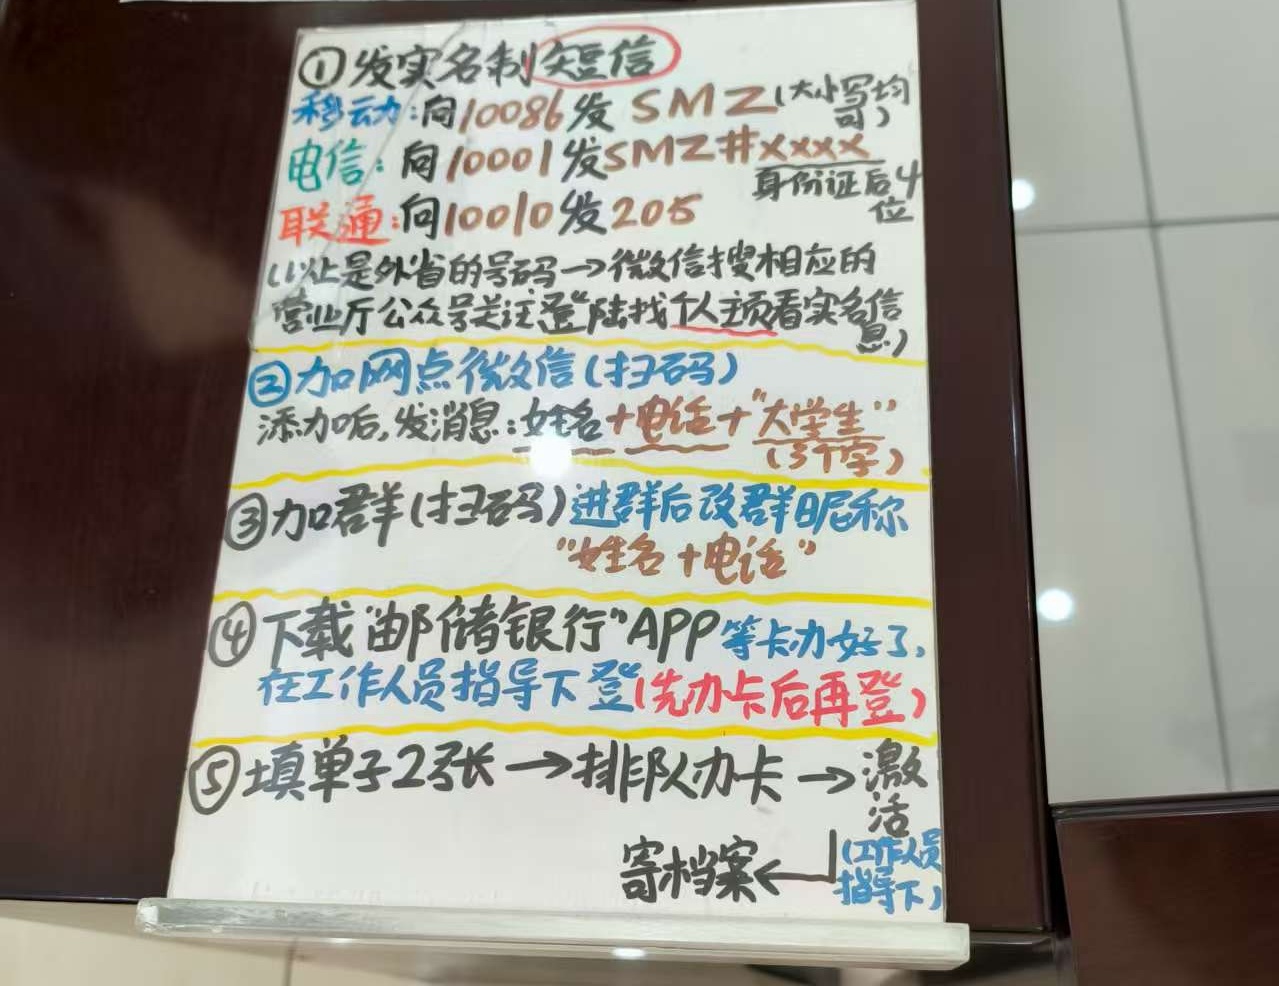 ①发实名制短信
移动:向10086发 SMZ(大小写均可)
电信:向10001发SMZ#xxxx
身份证后4位
联通:向10010发205
(以上是外省的号码→微信搜相应的
营业厅公众号关注登陆找个人主页看实名信息)
②加网点微信(扫码)
添加后,发消息:姓名+电话+"大学生"
(3个字)
③加群(扫码)进群后改群昵称
"姓名+电话"
④下载"邮储银行"APP等卡办好了,
在工作人员指导下登(先办卡后再登)
⑤填单子2张→排队办卡→激活
(工作人员指导下)
寄档案←